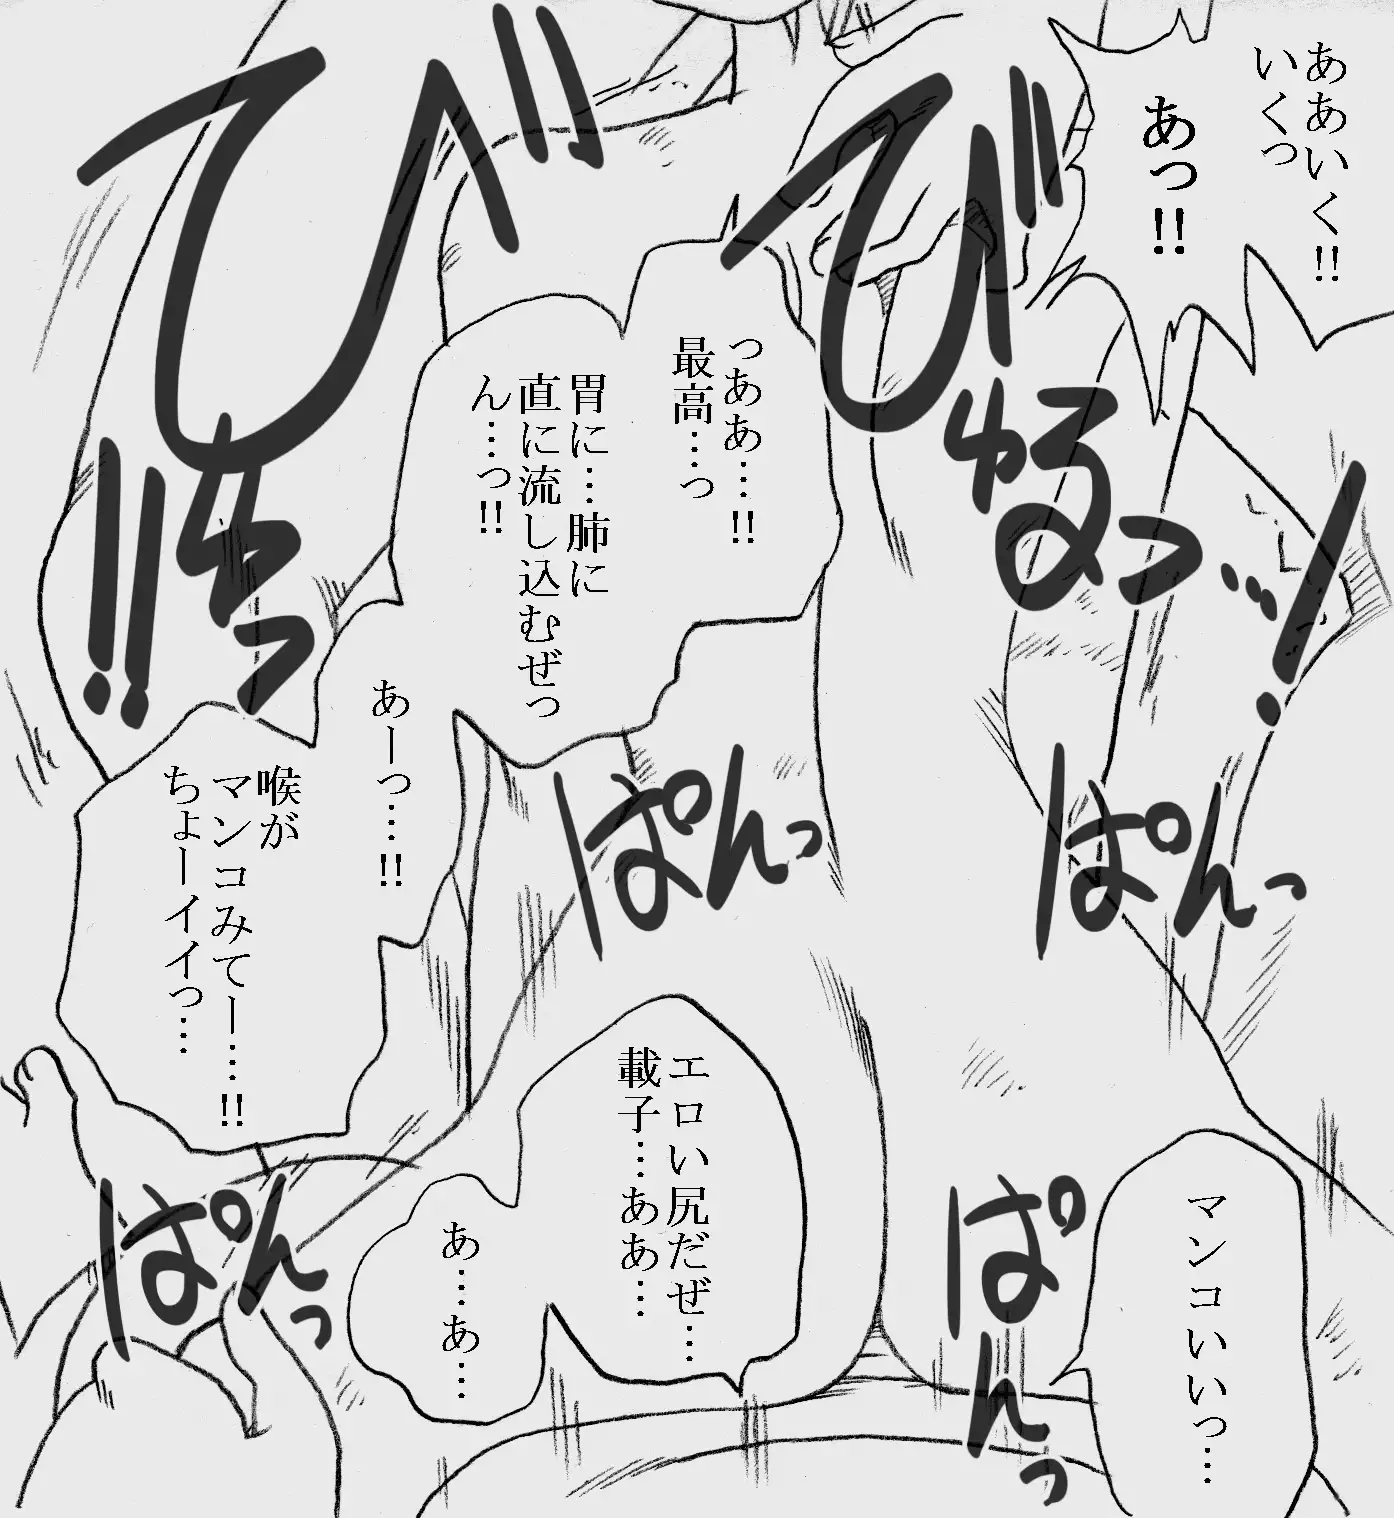 ああいく!!
いくっ
あっ!!
びゅるっ…!
び!!
ゅっ!!
っああ…!!
最高…っ
胃に…肺に
直に流し込むぜっ
ん…っ!!
あーっ…!!
喉が
マンコみてー…!!
ちょーイイっ…
ぱんっ
ぱんっ
マンコいいっ…
ぱんっ
エロい尻だぜ…
載子…ああ…
あ…あ…
ぱんっ